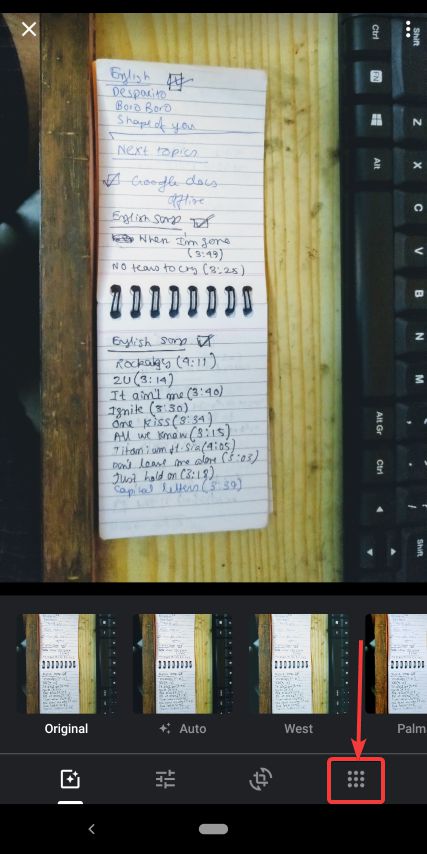 English
Despacito
Boro Boro
Shape of you
Next topics
Google docs
offline
English songs
When I'm gone
(3:49)
No tears to cry (3:25)
English songs
Rockabye (4:11)
2U (3:14)
It ain't me (3:40)
Ignite (3:30)
One Kiss (3:34)
All we know (3:15)
Titanium ft. Sia (4:05)
Don't leave me alone (3:03)
Just hold on (3:18)
Capital letters (3:39)
Shift
Ctrl
Fn
Z
Alt
X
C
V
B
N
M
Alt Gr
Ctrl
Shift
Original
Auto
West
Palm